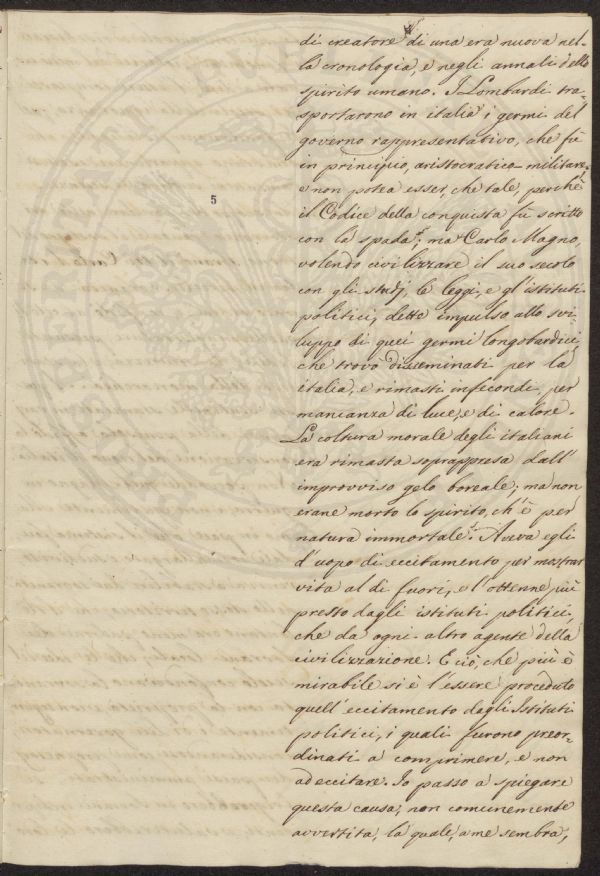 di creatore di una era nuova nel-
la cronologia, e negli annali dello
spirito umano. I Lombardi tra-
sportarono in italia i germi del
governo rappresentativo, che fù
in principio, aristocratico-militare,
e non potea esser, che tale, perchè
il Codice della conquista fù scritto
con la spada; ma Carlo Magno,
volendo civilizzare il suo secolo
con gli studj, le leggi, e gl'istituti
politici, dette impulso allo svi-
luppo di quei germi longobardici,
che trovò disseminati per la
italia, e rimasti infecondi per
mancanza di luce, e di calore.
La coltura morale degli italiani
era rimasta soprappresa dall'
improvviso gelo boreale; ma non
erane morto lo spirito, ch'è per
natura immortale. Aveva egli
d'uopo di eccitamento per mostrar
vita al di fuori, e l'ottenne più
presto dagli istituti politici,
che da ogni altro agente della
civilizzazione. E ciò, che più è
mirabile si è l'essere proceduto
quell'eccitamento dagli Istituti
politici, i quali furono preor-
dinati a comprimere, e non
ad eccitare. Io passo a spiegare
questa causa, non comunemente
avvertita, la quale, a me sembra,
5